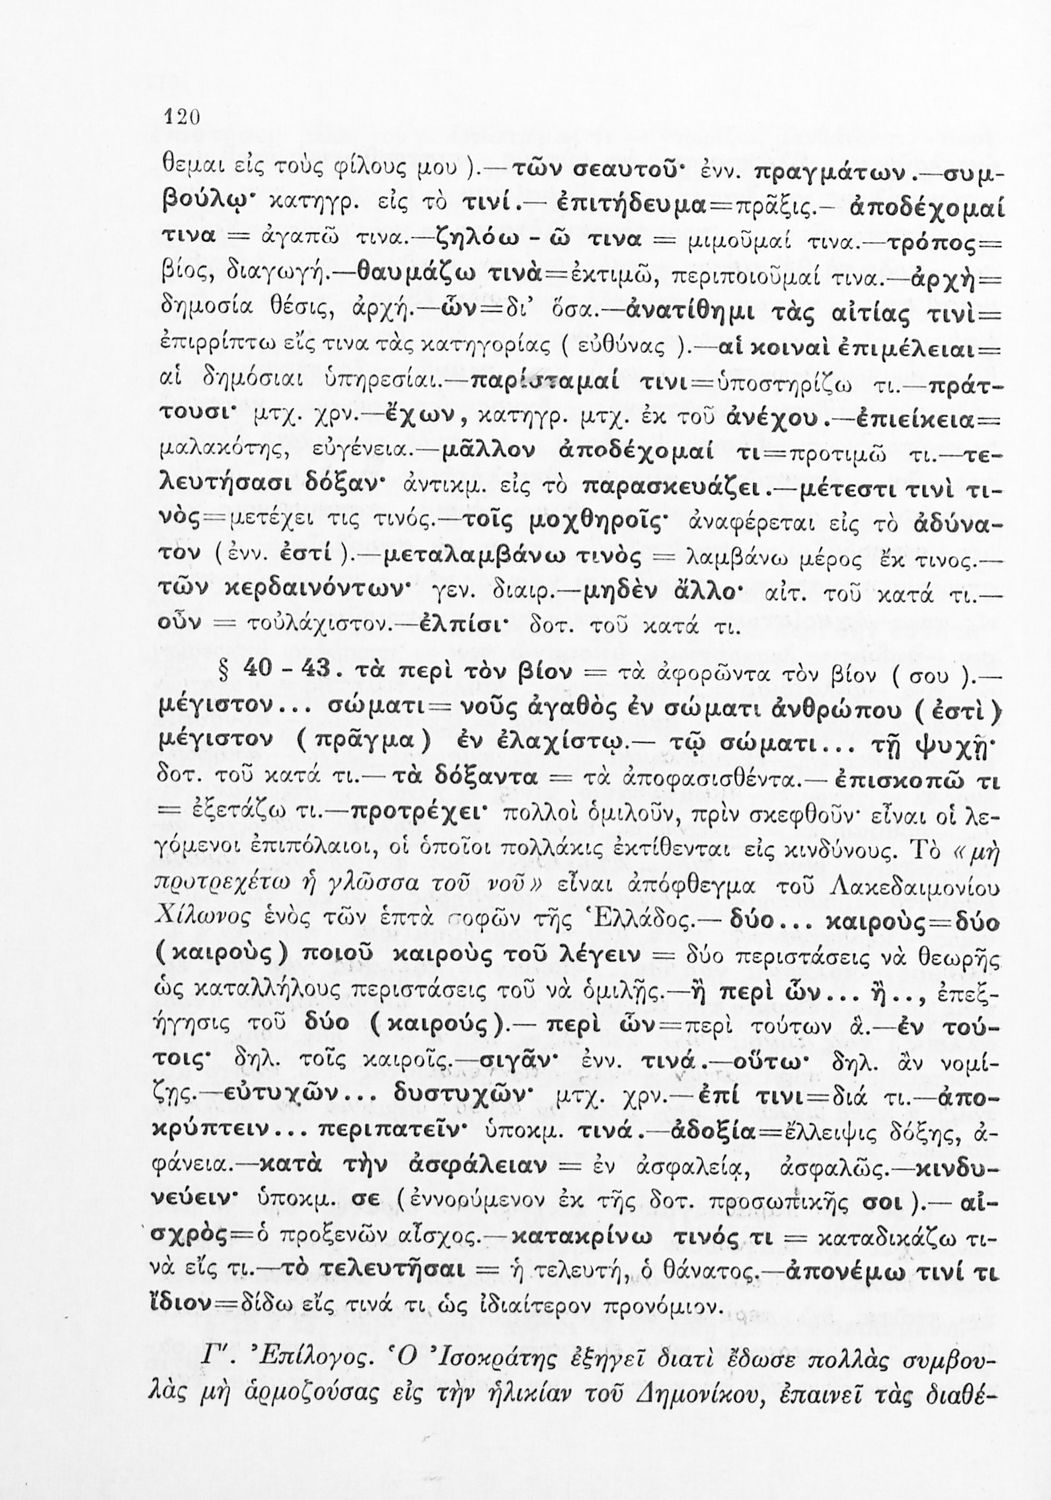 120
θεμαι εἰς τοὺς φίλους μου ).— τῶν σεαυτοῦ· ἐνν. πραγμάτων.—συμ-
βούλῳ· κατηγρ. εἰς τὸ τινί.— ἐπιτήδευμα=πρᾶξις.— ἀποδέχομαί
τινα = ἀγαπῶ τινα.—ζηλόω - ῶ τινα = μιμοῦμαί τινα.—τρόπος=
βίος, διαγωγή.—θαυμάζω τινὰ=ἐκτιμῶ, περιποιοῦμαί τινα.—ἀρχὴ=
δημοσία θέσις, ἀρχή.—ὧν=δι’ ὅσα.—ἀνατίθημι τὰς αἰτίας τινὶ=
ἐπιρρίπτω εἴς τινα τὰς κατηγορίας ( εὐθύνας ).—αἱ κοιναὶ ἐπιμέλειαι=
αἱ δημόσιαι ὑπηρεσίαι.—παρίσταμαί τινι=ὑποστηρίζω τι.—πράτ-
τουσι· μτχ. χρν.—ἔχων, κατηγρ. μτχ. ἐκ τοῦ ἀνέχου.—ἐπιείκεια=
μαλακότης, εὐγένεια.—μᾶλλον ἀποδέχομαί τι=προτιμῶ τι.—τε-
λευτήσασι δόξαν· ἀντικμ. εἰς τὸ παρασκευάζει.—μέτεστι τινὶ τι-
νὸς=μετέχει τις τινός.—τοῖς μοχθηροῖς· ἀναφέρεται εἰς τὸ ἀδύνα-
τον (ἐνν. ἐστί ).—μεταλαμβάνω τινὸς = λαμβάνω μέρος ἔκ τινος.—
τῶν κερδαινόντων· γεν. διαιρ.—μηδὲν ἄλλο· αἰτ. τοῦ κατά τι.—
οὖν = τοὐλάχιστον.—ἐλπίσι· δοτ. τοῦ κατά τι.
§ 40 - 43. τὰ περὶ τὸν βίον = τὰ ἀφορῶντα τὸν βίον ( σου ).—
μέγιστον... σώματι= νοῦς ἀγαθὸς ἐν σώματι ἀνθρώπου ( ἐστὶ )
μέγιστον ( πρᾶγμα) ἐν ἐλαχίστῳ.— τῷ σώματι... τῇ ψυχῇ·
δοτ. τοῦ κατά τι.— τὰ δόξαντα = τὰ ἀποφασισθέντα.— ἐπισκοπῶ τι
= ἐξετάζω τι.—προτρέχει· πολλοὶ ὁμιλοῦν, πρὶν σκεφθοῦν· εἶναι οἱ λε-
γόμενοι ἐπιπόλαιοι, οἱ ὁποῖοι πολλάκις ἐκτίθενται εἰς κινδύνους. Τὸ «μὴ
προτρεχέτω ἡ γλῶσσα τοῦ νοῦ» εἶναι ἀπόφθεγμα τοῦ Λακεδαιμονίου
Χίλωνος ἑνὸς τῶν ἑπτὰ σοφῶν τῆς Ἑλλάδος.— δύο... καιροὺς=δύο
(καιροὺς) ποιοῦ καιροὺς τοῦ λέγειν = δύο περιστάσεις νὰ θεωρῇς
ὡς καταλλήλους περιστάσεις τοῦ νὰ ὁμιλῇς.—ἢ περὶ ὧν... ἢ.., ἐπεξ-
ήγησις τοῦ δύο (καιρούς).— περὶ ὧν=περὶ τούτων ἃ.—ἐν τού-
τοις· δηλ. τοῖς καιροῖς.—σιγᾶν· ἐνν. τινά.—οὕτω· δηλ. ἂν νομί-
ζῃς.—εὐτυχῶν... δυστυχῶν· μτχ. χρν.—ἐπί τινι=διά τι.—ἀπο-
κρύπτειν... περιπατεῖν· ὑποκμ. τινά.—ἀδοξία=ἔλλειψις δόξης, ἀ-
φάνεια.—κατὰ τὴν ἀσφάλειαν = ἐν ἀσφαλείᾳ, ἀσφαλῶς.—κινδυ-
νεύειν· ὑποκμ. σε (ἐννοούμενον ἐκ τῆς δοτ. προσωπικῆς σοι ).— αἰ-
σχρὸς=ὁ προξενῶν αἶσχος.—κατακρίνω τινός τι = καταδικάζω τι-
νὰ εἴς τι.—τὸ τελευτῆσαι = ἡ τελευτή, ὁ θάνατος.—ἀπονέμω τινί τι
ἴδιον=δίδω εἴς τινά τι ὡς ἰδιαίτερον προνόμιον.
Γ′. Ἐπίλογος. Ὁ Ἰσοκράτης ἐξηγεῖ διατὶ ἔδωσε πολλὰς συμβου-
λὰς μὴ ἁρμοζούσας εἰς τὴν ἡλικίαν τοῦ Δημονίκου, ἐπαινεῖ τὰς διαθέ-